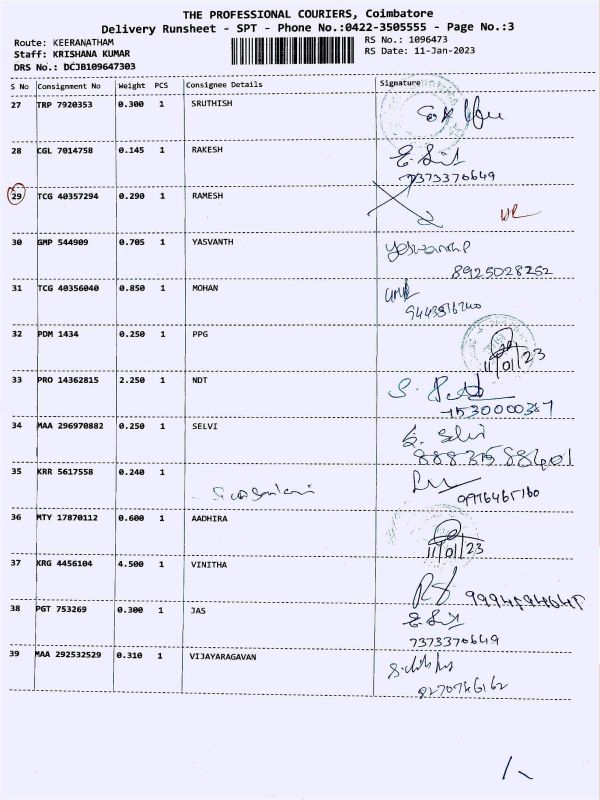 THE PROFESSIONAL COURIERS, Coimbatore
Delivery Runsheet - SPT - Phone No.:0422-3505555 - Page No.:3
Route: KEERANATHAM
RS No.: 1096473
Staff: KRISHANA KUMAR
RS Date: 11-Jan-2023
DRS No.: DCJB109647303
S No Consignment No Weight PCS Consignee Details Signature
27 TRP 7920353 0.300 1 SRUTHISH
28 CGL 7014758 0.145 1 RAKESH
7373370649
29 TCG 40357294 0.290 1 RAMESH
30 GMP 544909 0.705 1 YASVANTH
8925028252
31 TCG 40356040 0.850 1 MOHAN
32 PDM 1434 0.250 1 PPG
11/01/23
33 PRO 14362815 2.250 1 NDT
34 MAA 296970882 0.250 1 SELVI
S. Selvi
35 KRR 5617558 0.240 1
36 MTY 17870112 0.600 1 AADHIRA
11/01/23
37 KRG 4456104 4.500 1 VINITHA
38 PGT 753269 0.300 1 JAS
7373370649
39 MAA 292532529 0.310 1 VIJAYARAGAVAN